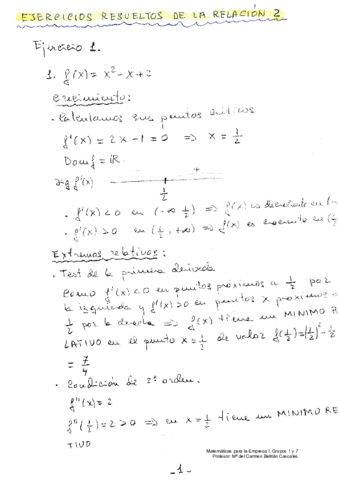 EJERCICIOS RESUELTOS DE LA RELACIÓN 2
Ejercicio 1.
1. f(x) = x² - x + 2
Crecimiento:
· Calculamos sus puntos críticos
f'(x) = 2x - 1 = 0 => x = 1/2
Dom f = ℝ
sig f'(x) - +
1/2
· f'(x) < 0 en (-∞, 1/2) => f(x) es decreciente en (-
· f'(x) > 0 en (1/2, +∞) => f(x) es creciente en (1/2
Extremos relativos:
· Test de la primera derivada
Como f'(x) < 0 en puntos próximos a 1/2 por
la izquierda y f'(x) > 0 en puntos x próximos a
1/2 por la derecha => f(x) tiene un MINIMO R
LATIVO en el punto x = 1/2 de valor f(1/2) = (1/2)² - 1/2
= 7/4
· Condición de 2º orden:
f''(x) = 2
f''(1/2) = 2 > 0 => en x = 1/2 tiene un MINIMO RE
TIVO
Matemáticas para la Empresa I. Grupos 1 y 7
Profesor: Mª del Carmen Beltrán Cascales
- 1 -